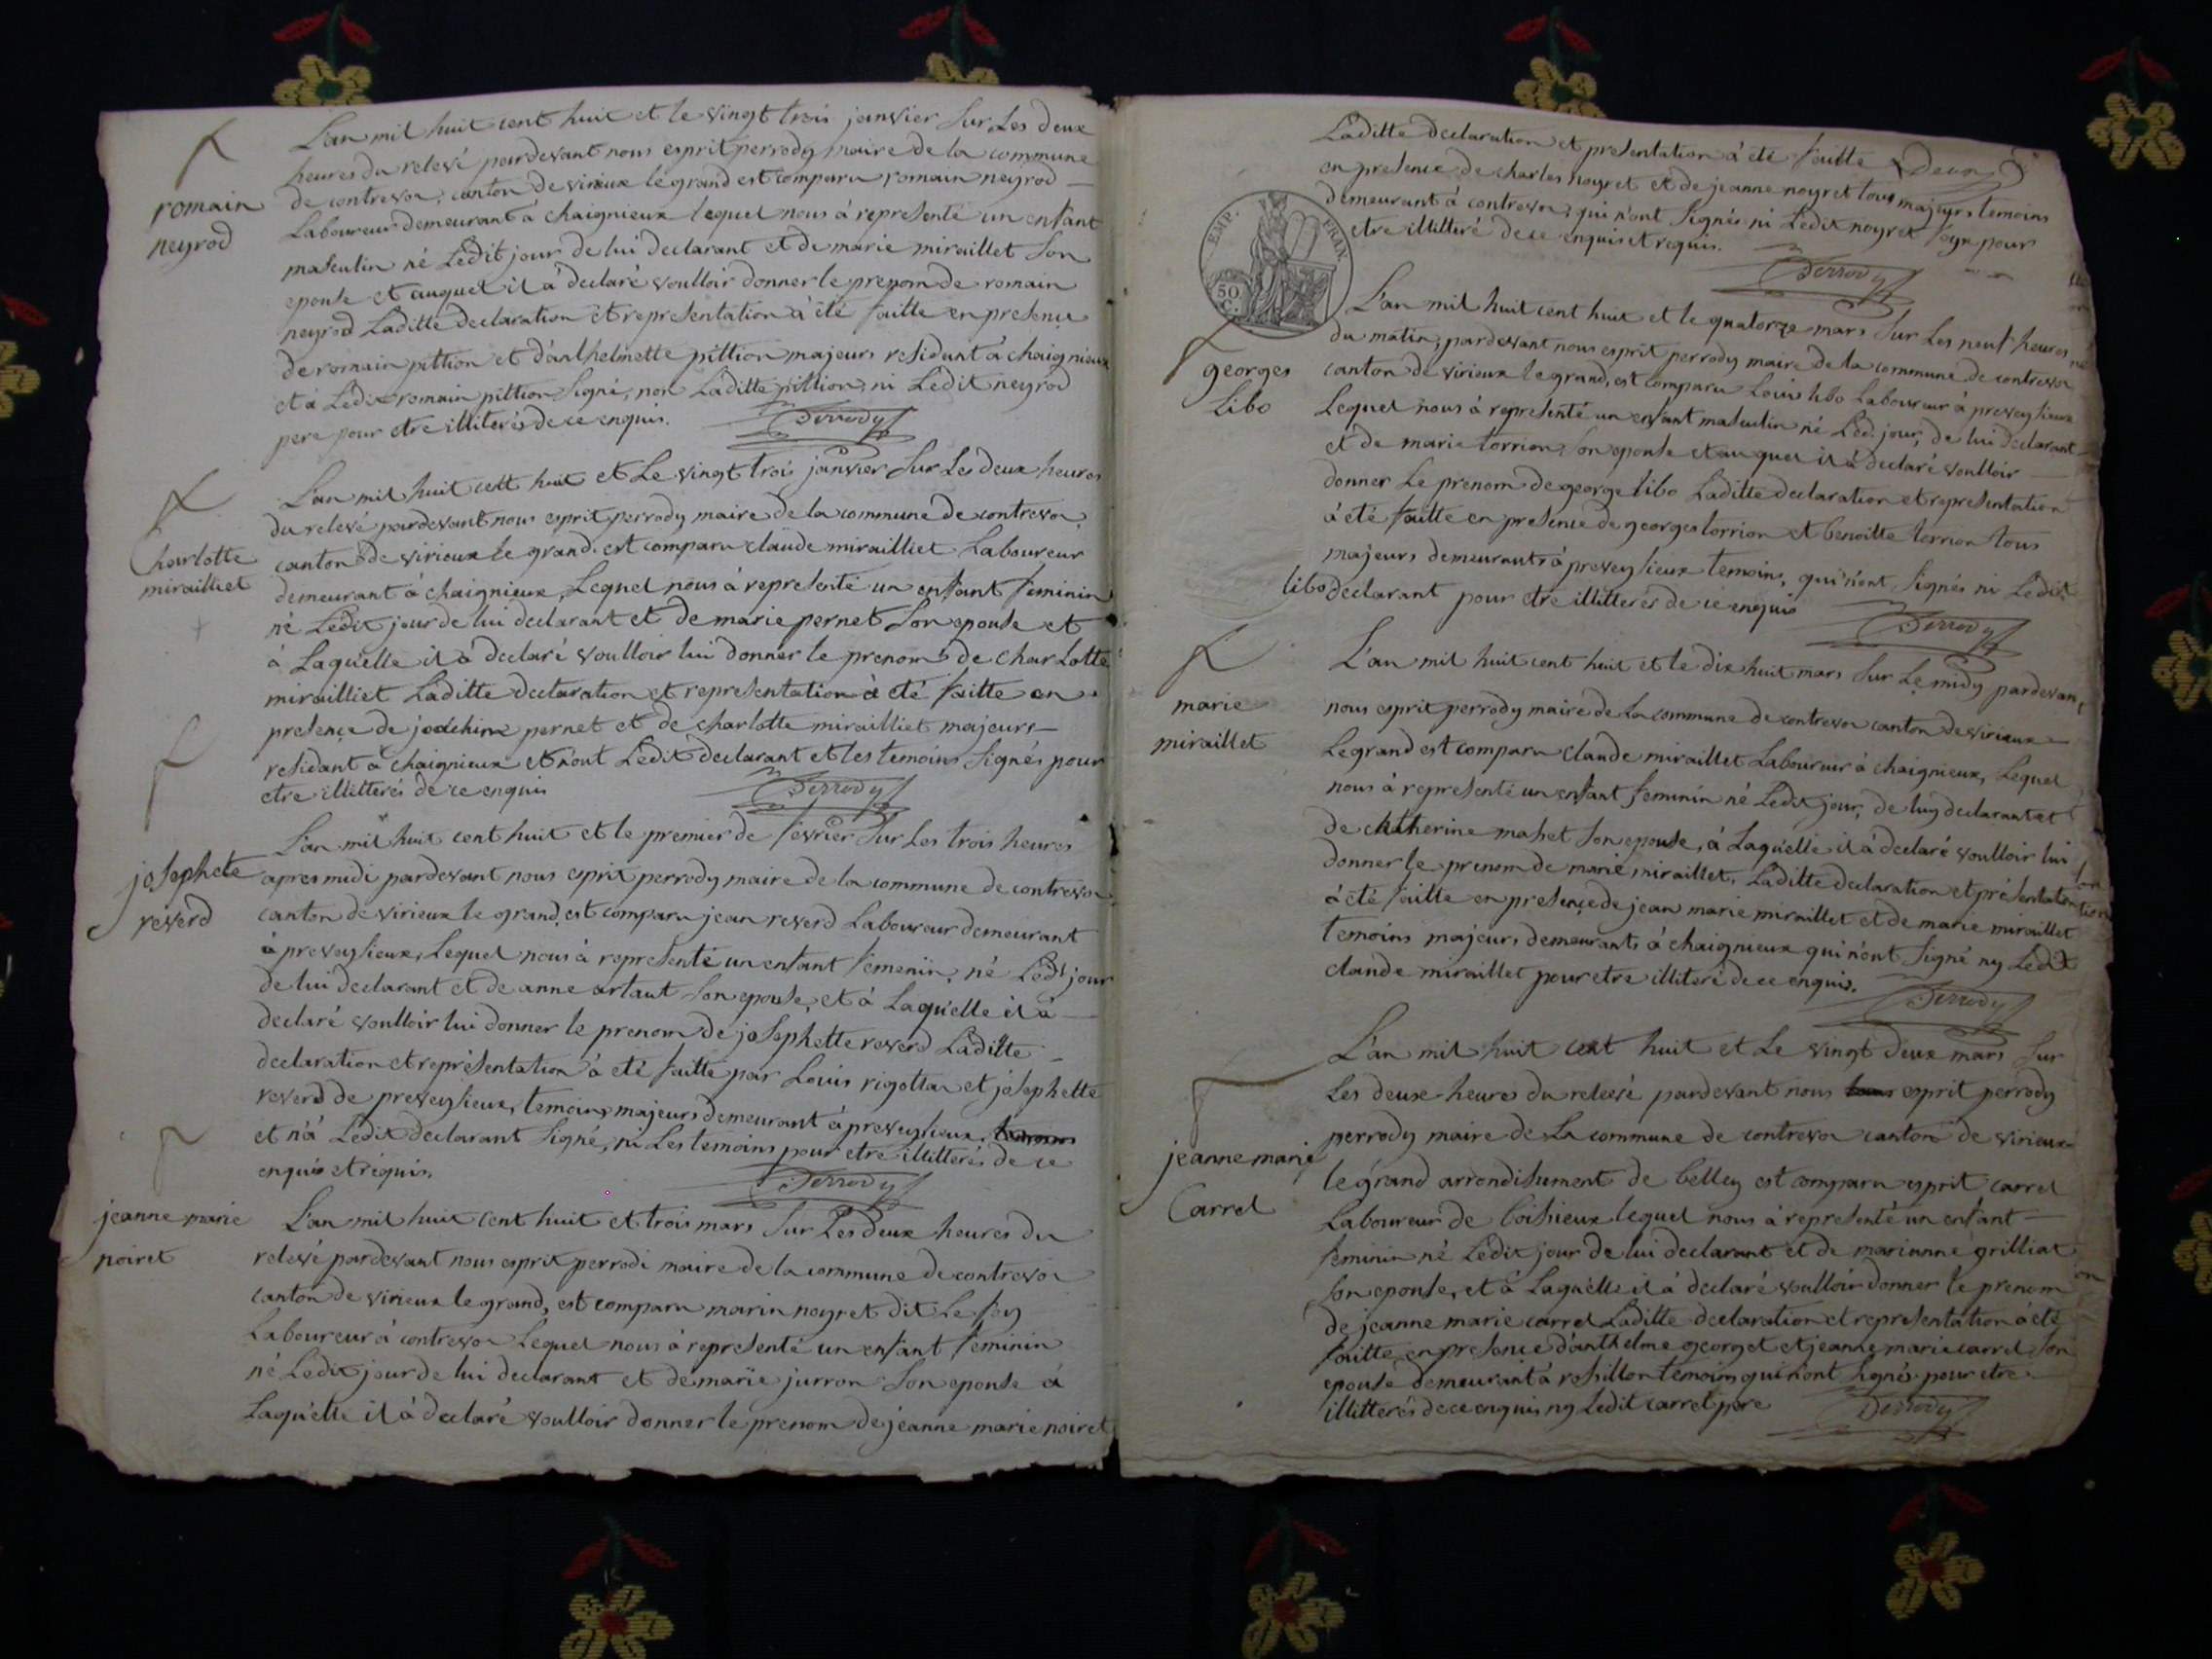 L'an mil huit cent huit et le vingt trois janvier sur les deux
heures du relevé pardevant nous esprit perrody maire de la commune
de contrevoz, canton de virieux le grand est comparu romain neyrod
romain
neyrod
Laboureur demeurant à chaignieux lequel nous à representé un enfant
masculin né Ledit jour de lui declarant et de marie miraillet son
epouse et auquel il à declaré voulloir donner le prenom de romain
neyrod Laditte declaration et representation à été faitte en presence
de romain pittion et d'anthelmette pittion majeurs residant à chaignieux
et à Ledit romain pittion signé, non Laditte pittion, ni Ledit neyrod
pere pour etre illiterés de ce enquis.
Perrody
L'an mil huit cent huit et Le vingt trois janvier sur Les deux heures
du relevé pardevant nous esprit perrody maire de la commune de contrevoz
Charlotte
mirailliet
canton de virieux le grand. est comparu claude mirailliet Laboureur
demeurant à chaignieux, Lequel nous à representé un enfant feminin
né Ledit jour de lui declarant et de marie pernet son epouse et
à Laquelle il à declaré voulloir lui donner le prenom de charlotte
mirailliet Laditte declaration et representation à été faitte en
presence de pernet et de charlotte mirailliet majeurs
residant à chaignieux et n'ont Ledit declarant et les temoins signés pour
etre illitterés de ce enquis
Perrody
L'an mil huit cent huit et le premier de fevrier sur Les trois heures
josephete
reverd
apres midi pardevant nous esprit perrody maire de la commune de contrevoz
canton de virieux le grand, est comparu jean reverd Laboureur demeurant
à preveyzieux, Lequel nous à representé un enfant femenin, né Ledt jour
de lui declarant et de anne artaut son epouse, et à Laquelle il à
declaré voulloir lui donner le prenom de josephette reverd Laditte
declaration et représentation à été faitte par Louis rigottaz et josephette
reverd de preveyzieux, temoins majeurs demeurant à preveyzieux,
et n'à Ledit declarant signé, ni Les temoins pour etre illitterés de ce
enquis et réquis.
Perrody
jeanne marie
noiret
L'an mil huit cent huit et trois mars sur Les deux heures du
relevé pardevant nous esprit perrodi maire de la commune de contrevoz
canton de virieux le grand, est comparu marin noyret dit Le fey
Laboureur à contrevoz Lequel nous à representé un enfant feminin
né Ledit jour de lui declarant et de marie jurron son epouse à
Laquelle il à declaré voulloir donner le prenom de jeanne marie noiret
Laditte declaration et presentation à été faitte
en presence de charles noyret et de jeanne noyret tous majeurs temoins
demeurant à contrevoz, qui n'ont signés ni Ledit noyret pour
etre illitteré de ce enquis et requis.
Perrody
EMP. FRAN.
50 C.
L'an mil huit cent huit et le quatorze mars sur Les neuf heures
du matin, pardevant nous esprit perrody maire de la commune de contrevoz
georges
Libo
canton de virieux le grand, est comparu Louis libo Laboureur à preveyzieux
Lequel nous à representé un enfant masculin né Led. jour, de lui declarant
et de marie torrion, son epouse et auquel il à declaré voulloir
donner Le prenom de george libo Laditte declaration et representation
à été faitte en presence de georges torrion et benoitte torrion tous
majeurs demeurants à preveyzieux temoins, qui n'ont signés ni Ledit
libo declarant pour etre illitterés de ce enquis
Perrody
L'an mil huit cent huit et le dix huit mars sur Le midy pardevan,
marie
miraillet
nous esprit perrody maire de La commune de contrevoz canton de virieux
Legrand est comparu claude miraillet Laboureur à chaignieux, Lequel
nous à representé un enfant feminin né Ledit jour, de luy declarant et
de catherine mahet son epouse, à Laquelle il à declaré voulloir lui
donner le prenom de marie miraillet, Laditte declaration et présentation
à été faitte en presence de jean marie miraillet et de marie miraillet
temoins majeurs demeurants à chaignieux qui n'ont signé ny Ledit
claude miraillet pour etre illiteré de ce enquis.
Perrody
L'an mil huit cent huit et Le vingt deux mars sur
Les deux heures du relevé pardevant nous esprit perrody
perrody maire de La commune de contrevoz canton de virieux
jeanne marie
Carrel
le grand arrondisument de belley est comparu esprit carrel
Laboureur de boissieux lequel nous à representé un enfant
feminin né Ledit jour de lui declarant et de marianne grilliat
son epouse, et à Laquelle il à declaré voulloir donner le prenom
de jeanne marie carrel Laditte declaration et representation à été
faitte en presence d'anthelme georget et jeanne marie carrel son
epouse demeurant à rossillon temoins qui n'ont signés pour etre
illitterés de ce enquis ny Ledit carrel pere
Perrody